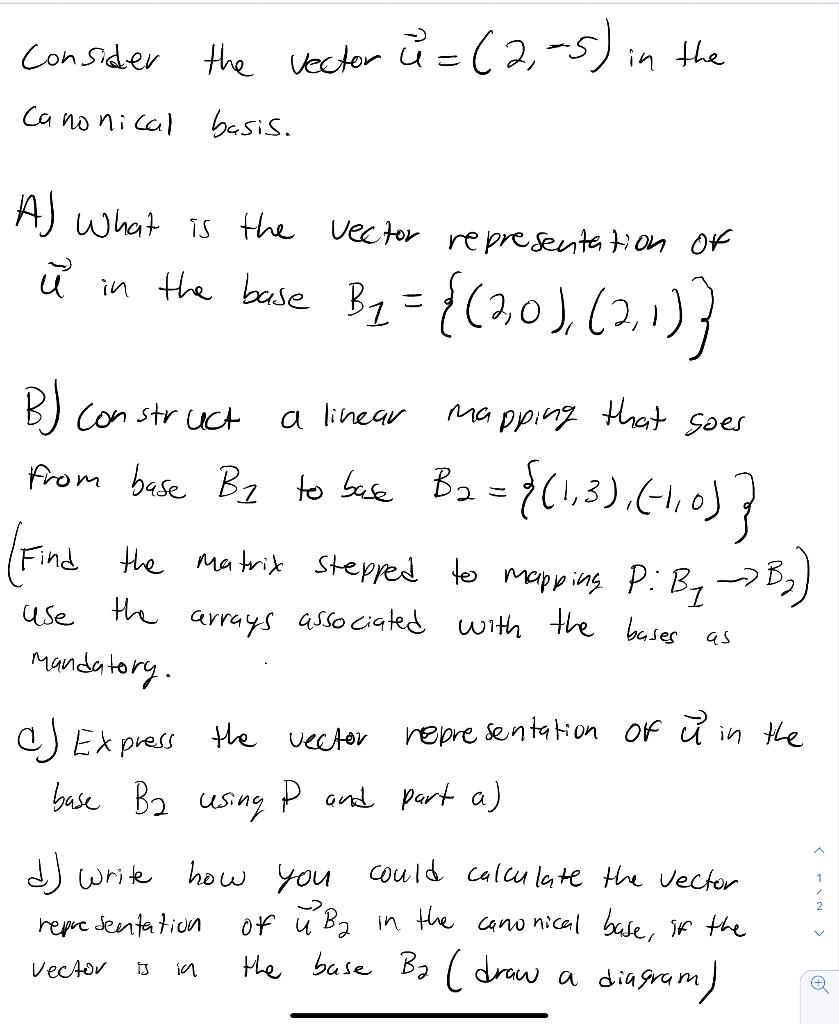 Consider the vector u⃗ = (2,-5) in the
Canonical basis.
A) What is the vector representation of
u⃗ in the base B1 = {(2,0), (2,1)}
B) Construct a linear mapping that goes
from base B1 to base B2 = {(1,3),(-1,0)}
(Find the matrix stepped to mapping P: B1 → B2)
use the arrays associated with the bases as
Mandatory.
C) Express the vector representation of u⃗ in the
base B2 using P and part a)
d) Write how you could calculate the vector
representation of u⃗B2 in the canonical base, if the
vector is in the base B2 (draw a diagram)
1
/
2